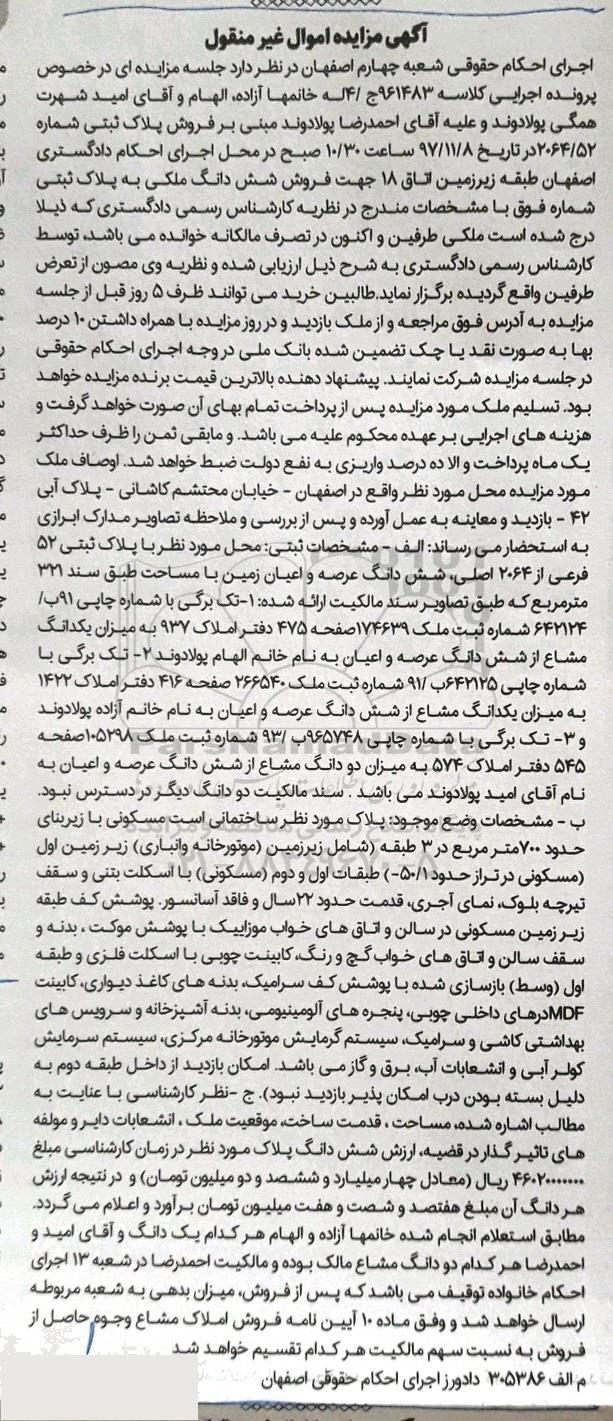 آگهی مزایده اموال غیر منقول
اجرای احکام حقوقی شعبه چهارم اصفهان در نظر دارد جلسه مزایده ای در خصوص
پرونده اجرایی کلاسه ۹۶۱۴۸۳ج /۴له خانمها آزاده، الهام و آقای امید شهرت
همگی پولادوند و علیه آقای احمدرضا پولادوند مبنی بر فروش پلاک ثبتی شماره
۲۰۶۴/۵۲در تاریخ ۹۷/۱۱/۸ ساعت ۱۰/۳۰ صبح در محل اجرای احکام دادگستری
اصفهان طبقه زیرزمین اتاق ۱۸ جهت فروش شش دانگ ملکی به پلاک ثبتی
شماره فوق با مشخصات مندرج در نظریه کارشناس رسمی دادگستری که ذیلا
درج شده است ملکی طرفین و اکنون در تصرف مالکانه خوانده می باشد، توسط
کارشناس رسمی دادگستری به شرح ذیل ارزیابی شده و نظریه وی مصون از تعرض
طرفین واقع گردیده برگزار نماید.طالبین خرید می توانند ظرف ۵ روز قبل از جلسه
مزایده به آدرس فوق مراجعه و از ملک بازدید و در روز مزایده با همراه داشتن ۱۰ درصد
بها به صورت نقد یا چک تضمین شده بانک ملی در وجه اجرای احکام حقوقی
در جلسه مزایده شرکت نمایند. پیشنهاد دهنده بالاترین قیمت برنده مزایده خواهد
بود. تسلیم ملک مورد مزایده پس از پرداخت تمام بهای آن صورت خواهد گرفت و
هزینه های اجرایی بر عهده محکوم علیه می باشد. و مابقی ثمن را ظرف حداکثر
یک ماه پرداخت و الا ده درصد واریزی به نفع دولت ضبط خواهد شد. اوصاف ملک
مورد مزایده محل مورد نظر واقع در اصفهان - خیابان محتشم کاشانی - پلاک آبی
۴۲ - بازدید و معاینه به عمل آورده و پس از بررسی و ملاحظه تصاویر مدارک ابرازی
به استحضار می رساند: الف - مشخصات ثبتی: محل مورد نظر با پلاک ثبتی ۵۲
فرعی از ۲۰۶۴ اصلی، شش دانگ عرصه و اعیان زمین با مساحت طبق سند ۳۲۱
مترمربع که طبق تصاویر سند مالکیت ارائه شده: ۱-تک برگی با شماره چاپی ۹۱ب/
۶۴۲۱۲۴ شماره ثبت ملک ۱۷۴۶۳۹صفحه ۴۷۵ دفتر املاک ۹۳۷ به میزان یکدانگ
مشاع از شش دانگ عرصه و اعیان به نام خانم الهام پولادوند ۲- تک برگی با
شماره چاپی ۶۴۲۱۲۵ب /۹۱ شماره ثبت ملک ۲۶۶۵۴۰ صفحه ۴۱۶ دفتر املاک ۱۴۲۲
به میزان یکدانگ مشاع از شش دانگ عرصه و اعیان به نام خانم آزاده پولادوند
و ۳- تک برگی با شماره چاپی ۹۶۵۷۴۸ب /۹۳ شماره ثبت ملک ۱۰۵۲۹۸صفحه
۵۴۵ دفتر املاک ۵۷۴ به میزان دو دانگ مشاع از شش دانگ عرصه و اعیان به
نام آقای امید پولادوند می باشد . سند مالکیت دو دانگ دیگر در دسترس نبود.
ب - مشخصات وضع موجود: پلاک مورد نظر ساختمانی است مسکونی با زیربنای
حدود ۷۰۰متر مربع در ۳ طبقه (شامل زیرزمین (موتورخانه وانباری) زیر زمین اول
(مسکونی در تراز حدود ۵۰/۱-) طبقات اول و دوم (مسکونی) با اسکلت بتنی و سقف
تیرچه بلوک، نمای آجری، قدمت حدود ۲۲سال و فاقد آسانسور. پوشش کف طبقه
زیر زمین مسکونی در سالن و اتاق های خواب موزاییک با پوشش موکت ، بدنه و
سقف سالن و اتاق های خواب گچ و رنگ، کابینت چوبی با اسکلت فلزی و طبقه
اول (وسط) بازسازی شده با پوشش کف سرامیک، بدنه های کاغذ دیواری، کابینت
MDFدرهای داخلی چوبی، پنجره های آلومینیومی، بدنه آشپزخانه و سرویس های
بهداشتی کاشی و سرامیک، سیستم گرمایش موتورخانه مرکزی، سیستم سرمایش
کولر آبی و انشعابات آب، برق و گاز می باشد. امکان بازدید از داخل طبقه دوم به
دلیل بسته بودن درب امکان پذیر بازدید نبود). ج -نظر کارشناسی با عنایت به
مطالب اشاره شده، مساحت ، قدمت ساخت، موقعیت ملک ، انشعابات دایر و مولفه
های تاثیر گذار در قضیه، ارزش شش دانگ پلاک مورد نظر در زمان کارشناسی مبلغ
۴۶۰۲۰۰۰۰۰۰۰ ریال (معادل چهار میلیارد و ششصد و دو میلیون تومان) و در نتیجه ارزش
هر دانگ آن مبلغ هفتصد و شصت و هفت میلیون تومان برآورد و اعلام می گردد.
مطابق استعلام انجام شده خانمها آزاده و الهام هر کدام یک دانگ و آقای امید و
احمدرضا هر کدام دو دانگ مشاع مالک بوده و مالکیت احمدرضا در شعبه ۱۳ اجرای
احکام خانواده توقیف می باشد که پس از فروش، میزان بدهی به شعبه مربوطه
ارسال خواهد شد و وفق ماده ۱۰ آیین نامه فروش املاک مشاع وجوه حاصل از
فروش به نسبت سهم مالکیت هر کدام تقسیم خواهد شد
م الف ۳۰۵۳۸۶ دادورز اجرای احکام حقوقی اصفهان